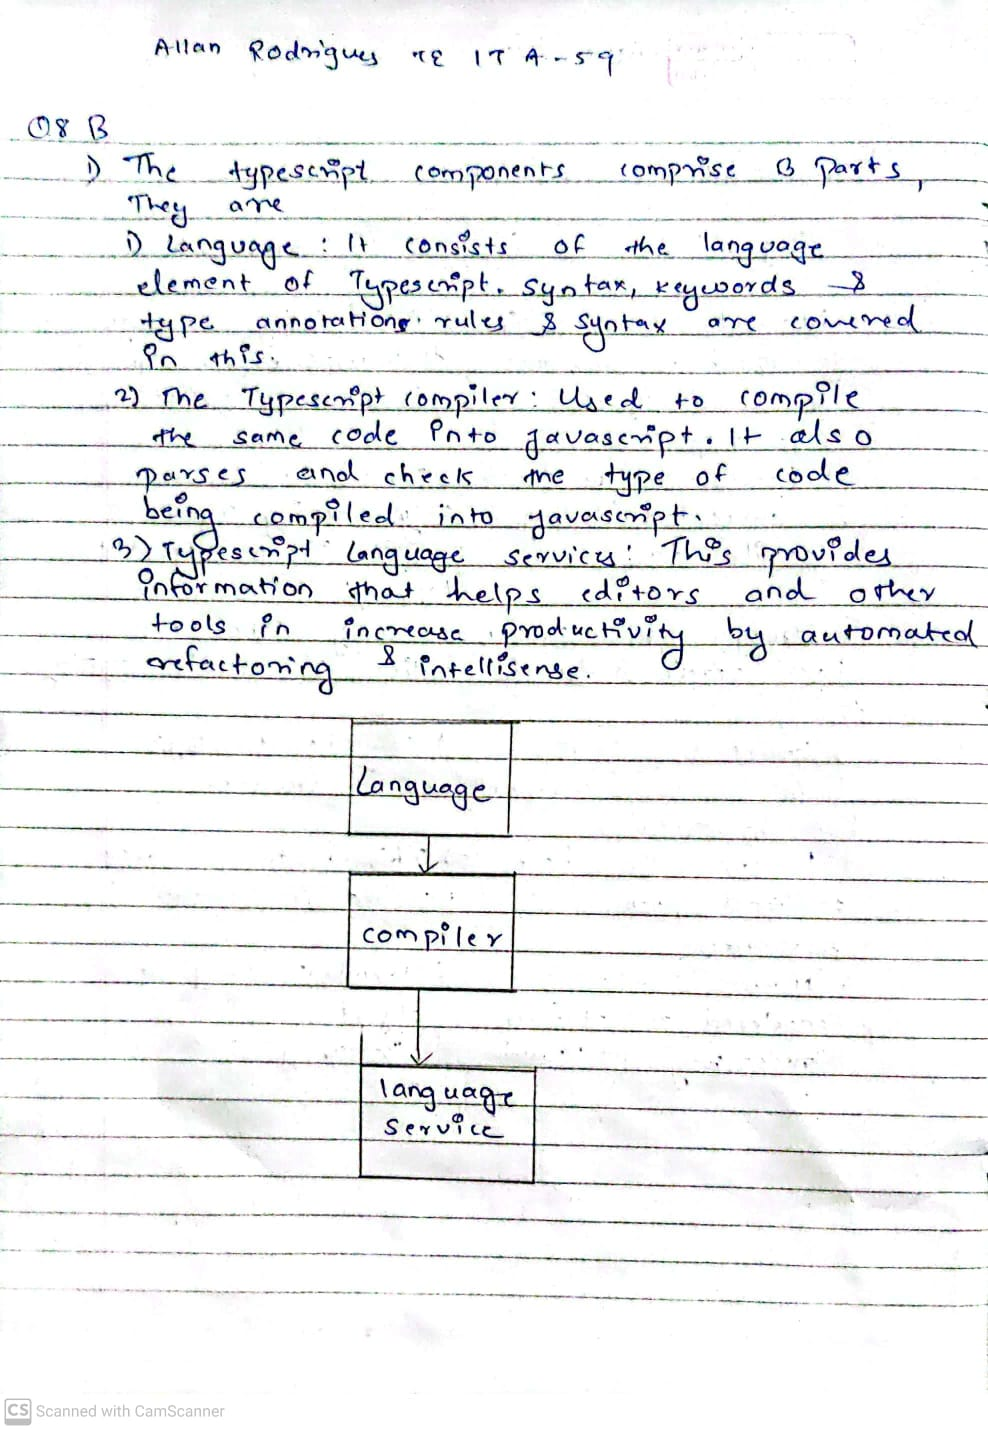 Allan Rodrigues TE IT A-59
Q8 B
1) The typescript components comprise 3 parts,
They are
1) Language : It consists of the language
element of Typescript. Syntax, keywords &
type annotations rules & syntax are covered
in this.
2) The Typescript compiler : Used to compile
the same code into javascript. It also
parses and check the type of code
being compiled into javascript.
3) Typescript language services : This provides
information that helps editors and other
tools in increase productivity by automated
refactoring & intellisense.
Language
compiler
language
service
CS Scanned with CamScanner